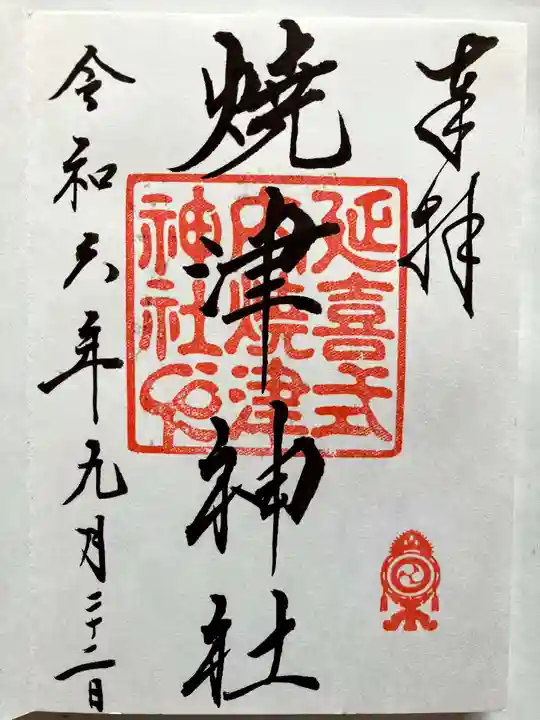 奉拝
焼津神社
延喜式
内焼津
神社印
令和六年九月二十二日